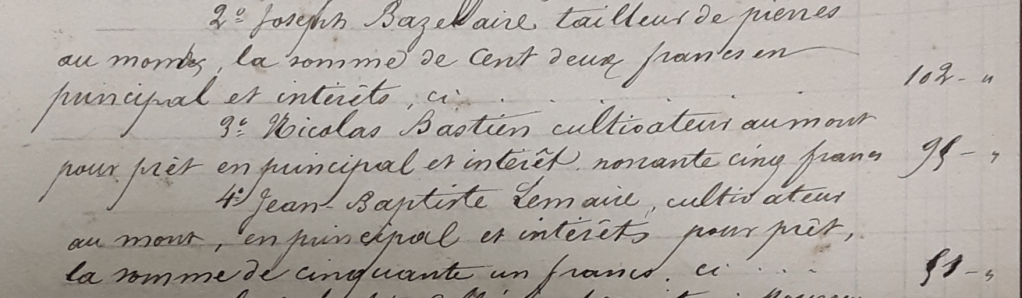 2º Joseph Bazelaire tailleur de pierres
au mont, la somme de cent deux francs en
principal et intérêts, ci . . . . 102 - "
3º Nicolas Bastien cultivateur au mont
pour prêt en principal et intérêt nonante cinq francs 95 - "
4º Jean-Baptiste Lemaire, cultivateur
au mont, en principal et intérêts pour prêt,
la somme de cinquante un francs, ci . . . . 51 - "